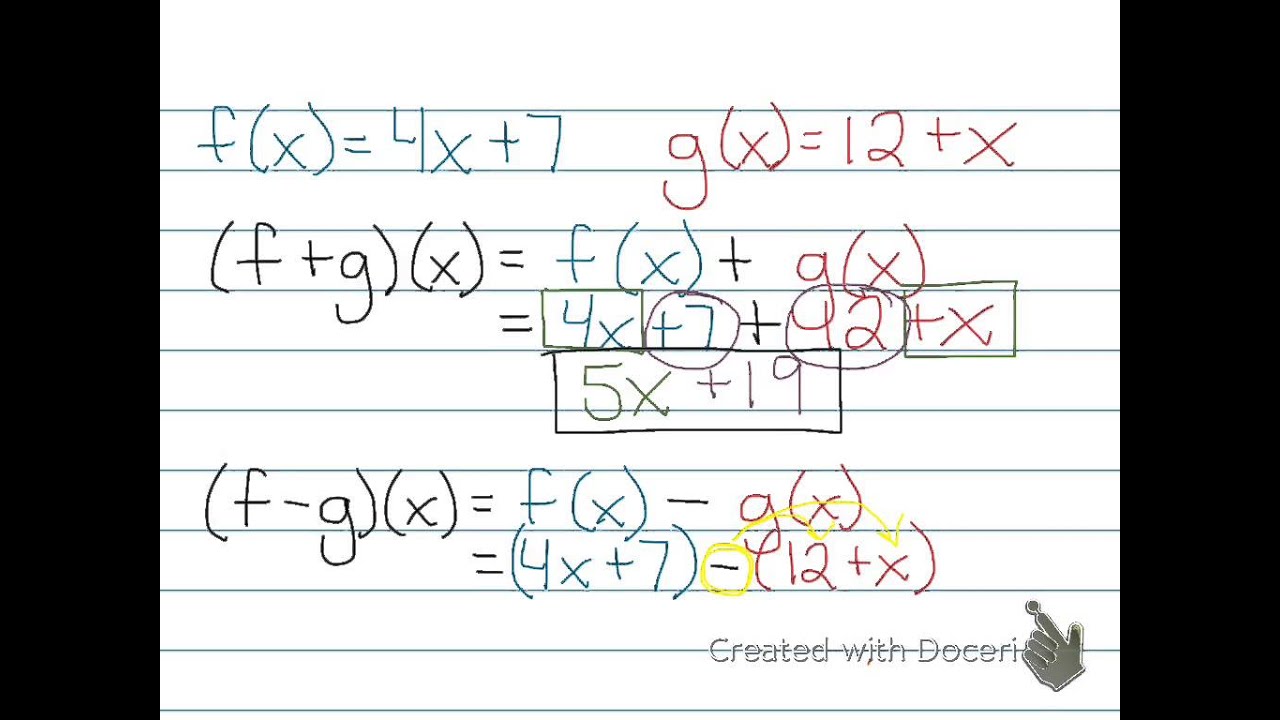 f(x)=4x+7 g(x)=12+x
(f+g)(x)= f(x)+ g(x)
= 4x+7+12+x
5x+19
(f-g)(x)= f(x)- g(x)
=(4x+7)-(12+x)
Created with Doceri